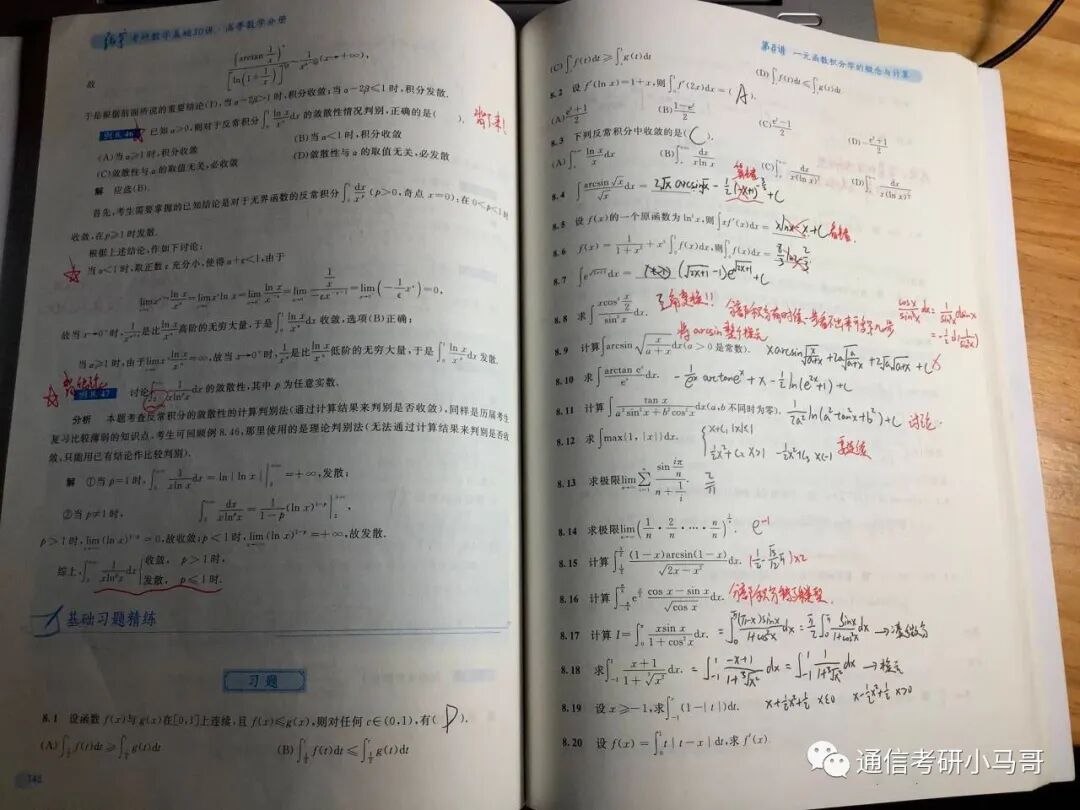 考研数学基础30讲·高等数学分册
故
[(arctan 1/x)^α / [ln(1+1/x)]^{2β}] ~ 1/x^{α-2β} (x→+∞),
于是根据前面所说的重要结论(1),当α-2β>1时,积分收敛;当α-2β≤1时,积分发散.
例8.46 已知α≥0,则对于反常积分∫₀¹ ln x/x^α dx的敛散性情况判别,正确的是( ).
(A)当α≥1时,积分收敛 (B)当α<1时,积分收敛
(C)敛散性与α的取值无关,必收敛 (D)敛散性与α的取值无关,必发散
解 应选(B).
首先,考生需要掌握的已知结论是对于无界函数的反常积分∫₀¹ dx/x^p (p>0,奇点x=0):在0<p<1时
收敛,在p≥1时发散.
根据上述结论,作如下讨论:
当α<1时,取正数ε充分小,使得α+ε<1,由于
故当x→0⁺时,1/x^{α+ε}是比ln x/x^α高阶的无穷大量,于是∫₀¹ ln x/x^α dx收敛,选项(B)正确;
当α≥1时,由于lim x^α ln x/x^α=∞,故当x→0⁺时,1/x^α是比ln x/x^α低阶的无穷大量,于是∫₀¹ ln x/x^α dx发散.
例8.47 讨论∫₂^{+∞} 1/(x ln^p x) dx的敛散性,其中p为任意实数.
分析 本题考查反常积分的敛散性的计算判别法(通过计算结果来判别是否收敛),同样是历届考生
复习比较薄弱的知识点.考生可回顾例8.46,那里使用的是理论判别法(无法通过计算结果来判别是否收
敛,只能用已有结论作比较判别).
解 ①当p=1时,∫₂^{+∞} 1/(x ln x) dx = ln|ln x| |₂^{+∞} = +∞,发散;
②当p≠1时, ∫₂^{+∞} dx/(x ln^p x) = 1/(1-p) (ln x)^{1-p} |₂^{+∞},
p>1时,lim(ln x)^{1-p}=0,故收敛;p<1时,lim(ln x)^{1-p}=+∞,故发散.
综上,∫₂^{+∞} 1/(x ln^p x) dx {收敛, p>1时, 发散, p≤1时.
基础习题精练
习题
8.1 设函数f(x)与g(x)在[0,1]上连续,且f(x)≤g(x),则对任何c∈(0,1),有( D ).
(A)∫_{1/2}^c f(t)dt≥∫_{1/2}^c g(t)dt (B)∫_{1/2}^c f(t)dt≤∫_{1/2}^c g(t)dt
第8讲 一元函数积分学的概念与计算
(C)∫_c^1 f(t)dt≥∫_c^1 g(t)dt (D)∫_c^1 f(t)dt≤∫_c^1 g(t)dt
8.2 设f'(ln x)=1+x,则∫₀¹ f'(2x)dx=( A ).
(A)(e²+1)/2 (B)(1-e²)/2 (C)(e²-1)/2 (D)-(e²+1)/2
8.3 下列反常积分中收敛的是( C ).
(A)∫_e^{+∞} ln x/x dx (B)∫_e^{+∞} dx/(x ln x) (C)∫_e^{+∞} dx/(x(ln x)²) (D)∫_e^{+∞} dx/(x(ln x)^{1/2})
8.4 ∫ arcsin√x/√x dx = 2√x arcsin√x
8.5 设f(x)的一个原函数为ln²x,则∫xf'(x)dx=
8.6 f(x)=1/(1+x²)+x³∫₀¹ f(x)dx,则∫₀¹ f(x)dx=
8.7 ∫e^{√(2x+1)}dx = (√(2x+1)-1)e^{√(2x+1)}+C
8.8 求∫ x cos⁴(x/2)/sin³x dx. 三角变换!!
将arcsin整个换元
8.9 计算∫arcsin√(x/(a+x)) dx(a>0是常数).
8.10 求∫ arctan e^x/e^x dx. -1/e^x arctan e^x + x - ½ln(e^{2x}+1)+C
8.11 计算∫ tan x/(a²sin²x+b²cos²x) dx(a,b不同时为零). 1/(2a²) ln(a²tan²x+b²)+C 讨论
8.12 求∫max{1,|x|}dx. { x+C₁ |x|≤1
½x²+C₂ x>1 -½x²+C₃ x<-1
8.13 求极限lim Σ sin(iπ/n)/(n+1/i). 2/π
8.14 求极限lim(1/n·2/n·…·n/n)^{1/n}. e⁻¹
8.15 计算∫ (1-x)arcsin(1-x)/√(2x-x²) dx.
8.16 计算∫_{-π/2}^{π/2} e^{x/2} (cos x-sin x)/√cos x dx.
8.17 计算I=∫₀^π x sin x/(1+cos²x) dx. =∫₀^π (π-x)sin x/(1+cos²x) dx = π/2∫₀^π sin x/(1+cos²x) dx →凑微分
8.18 求∫₋₁¹ (x+1)/(1+∛x²) dx. =∫₋₁¹ (-x+1)/(1+∛x²) dx =∫₋₁¹ 1/(1+∛x²) dx →换元
8.19 设x≥-1,求∫₋₁^x (1-|t|)dt. x+½x²+½ x≤0 x-½x²+½ x>0
8.20 设f(x)=∫₀¹ t|t-x|dt,求f'(x).
通信考研小马哥